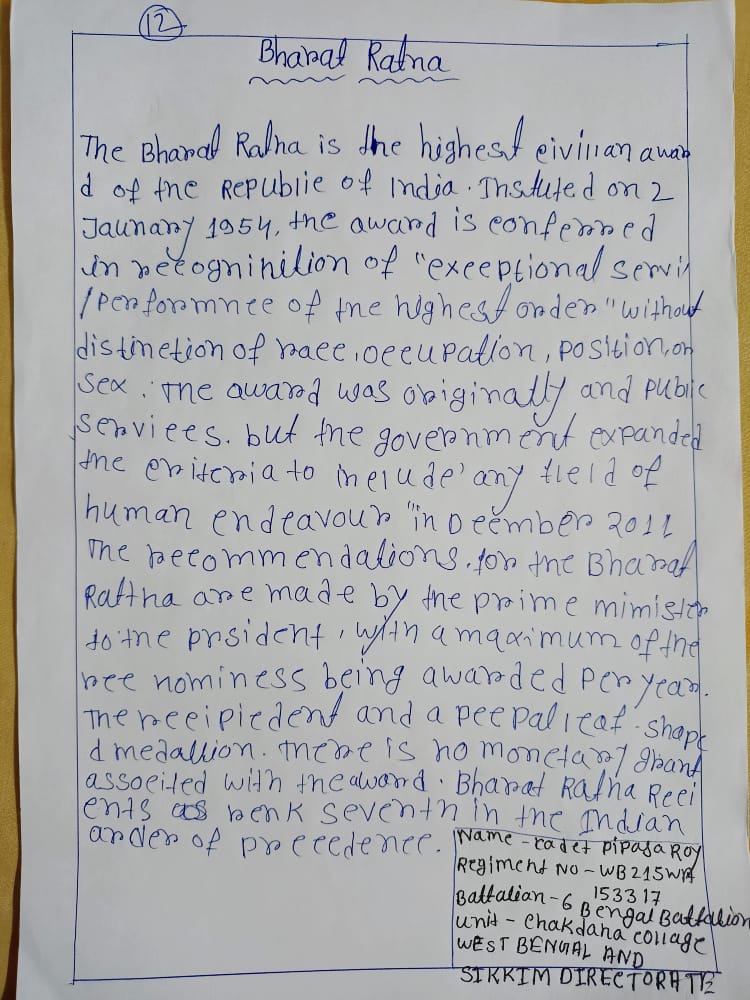 12
Bharat Ratna
The Bharat Ratna is the highest eivilian awar
d of the Republie of India. Instuted on 2
Jaunary 1954, the award is conferred
in reeogninition of "exeeptional servi
/performnee of the highest order" without
distinetion of raee, oeeupation, position, or
sex. The award was originally and pubic
serviees. but the government expanded
the eriteria to inelude' any field of
human endeavour "in Deember 2011
The reeommendations. for the Bharat
Rattna are made by the prime mimister
to the prsident, with a maximum of the
ree nominess being awarded per year.
The reeipiedent and a peepal leaf. shape
d medallion. There is no monetary grant
assoeited with the award. Bharat Ratna Reei
ents as renk seventh in the Indian
arder of preeedenee.
Name - cadet Pipasa Roy
Regiment No - WB21SWA
153317
Battalian - 6 Bengal Battalion
unit - Chakdaha Collage
WEST BENGAL AND
SIKKIM DIRECTORATE